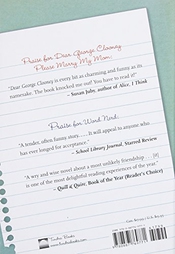 Praise for Dear George Clooney
Please Marry My Mom:
"Dear George Clooney is every bit as charming and funny as its
namesake. The book knocked me out! You have to read it!"
– Susan Juby, author of Alice, I Think
Praise for Word Nerd:
"A tender, often funny story. . . . It will appeal to anyone who
has ever longed for acceptance."
– School Library Journal, Starred Review
"A wry and wise novel about a most unlikely friendship . . . [it]
is one of the most delightful reading experiences of the year."
– Quill & Quire, Book of the Year (Reader's Choice)
Tundra Books